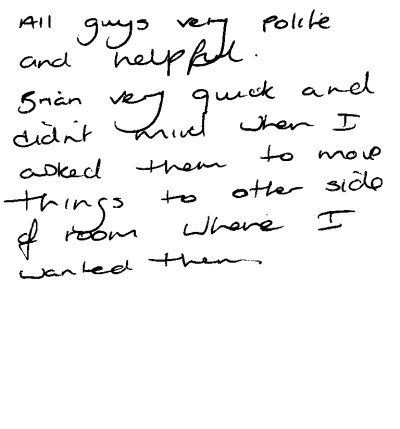 All guys very polite
and helpful.
Brian very quick and
didn't mind when I
asked them to move
things to other side
of room where I
wanted them